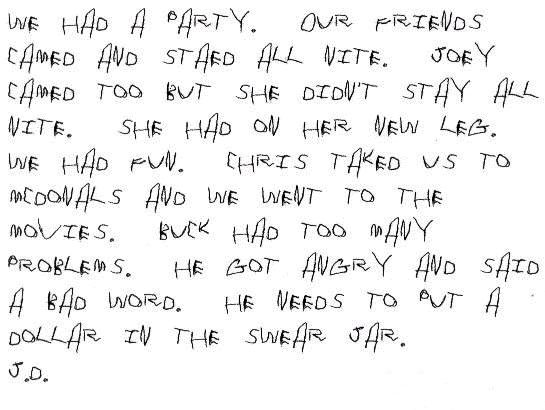 WE HAD A PARTY. OUR FRIENDS
CAMED AND STAED ALL NITE. JOEY
CAMED TOO BUT SHE DIDN'T STAY ALL
NITE. SHE HAD ON HER NEW LEG.
WE HAD FUN. CHRIS TAKED US TO
MCDONALS AND WE WENT TO THE
MOVIES. BUCK HAD TOO MANY
PROBLEMS. HE GOT ANGRY AND SAID
A BAD WORD. HE NEEDS TO PUT A
DOLLAR IN THE SWEAR JAR.
J.D.